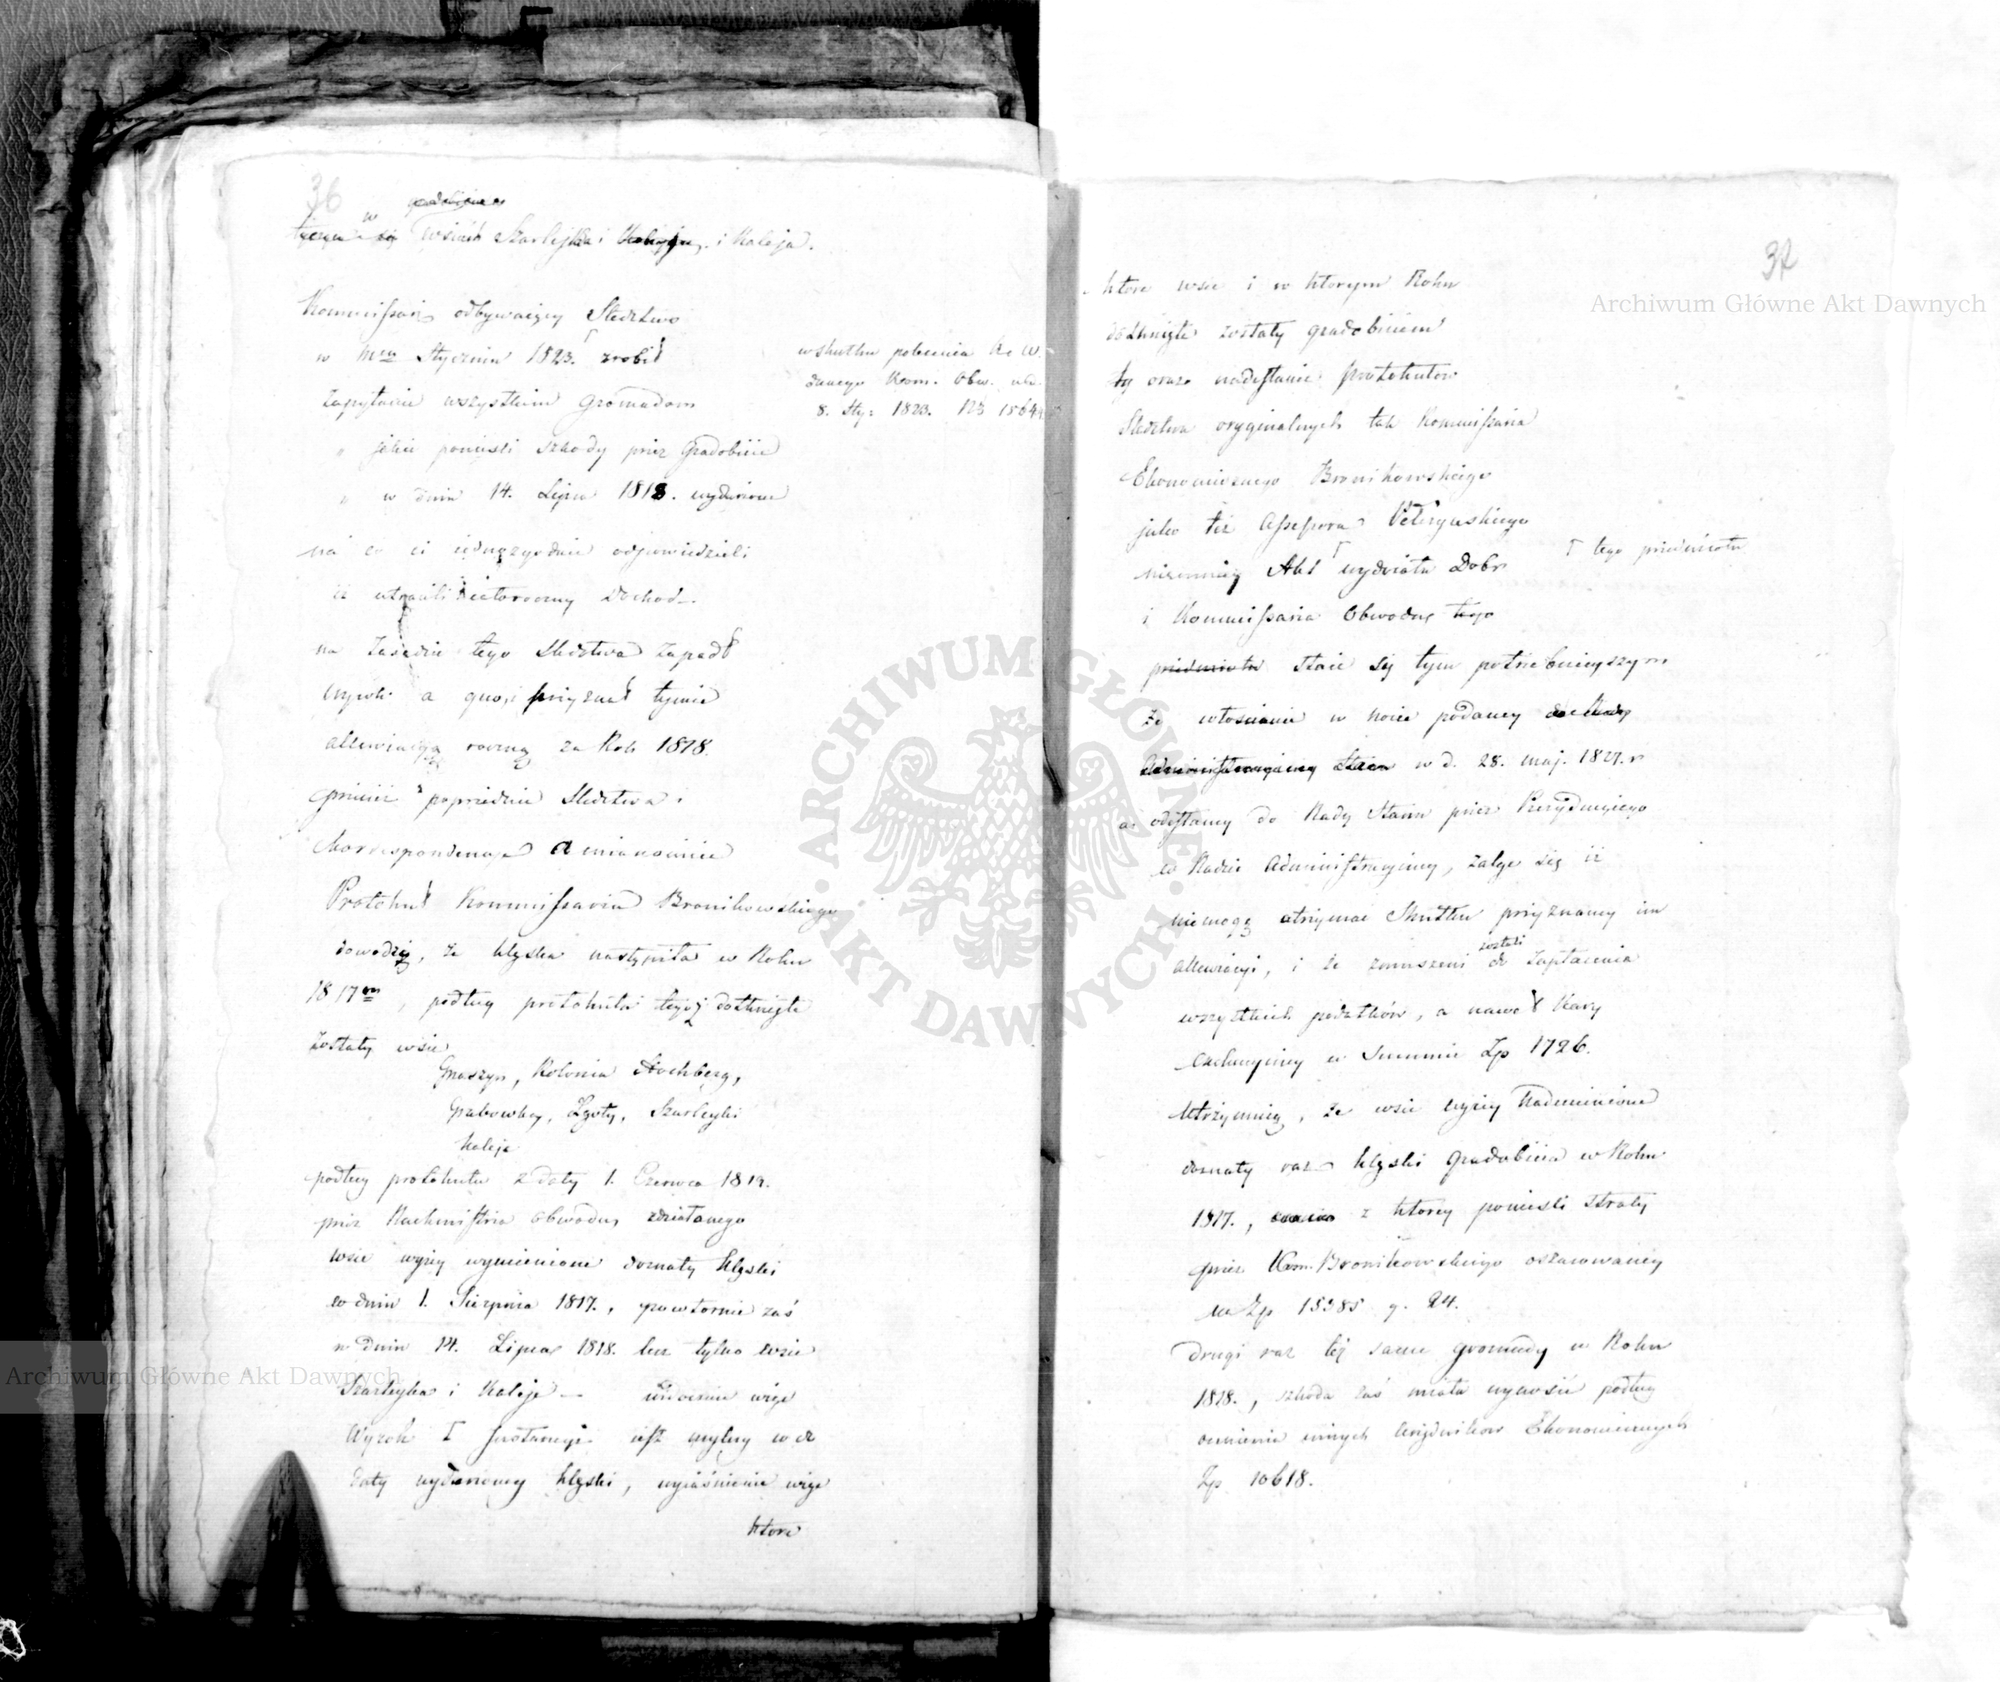 36
w gradobicie
wsiach Szarlejka i i Kaleja.
Kommissarz odbywaiący Sledztwo
w mcu Styczniu 1823. zrobił
w skutku polecenia K. W.
danego Kom. Obw. na
8. Sty: 1823. N 1564
zapytanie wszystkim Gromadom
„ jakie ponieśli szkody przez Gradobicie
„ w dniu 14. Lipca 1818. wydarzone
na co ci iednozgodnie odpowiedzieli
iż utracili całoroczny dochod.
na zasadzie tego Sledztwa zapadł
wyrok a quo, i przyznał tymże
allewiacyą roczną za Rok 1818.
Gdy poprzednie Sledztwa i
Korrespondencye a mianowicie
Protokuł Kommissarza Bronikowskiego
dowodzą, że klęska nastąpiła w Roku
1817m, podług protokułu tego dotknięte
zostały wsie
Gnaszyn, Kolonia Hochberg,
Grabowka, Lgoty, Szarleyki
Kaleje
podług protokułu z daty 1. Czerwca 1819.
przez Rachmistrza obwodu zdziałanego
wsie wyżey wymienione doznały klęski
w dniu 1. Sierpnia 1817., powtornie zaś
w dniu 14. Lipca 1818. lecz tylko wsie
Szarleyka i Kaleje — widocznie więc
Wyrok I Instancyi iest mylny w do
daty wydarzoney klęski, wyiaśnienie więc
ktore
37
ktore wsie i w ktorym Roku
dotknięte zostały gradobiciem
tyż oraz nadesłanie protokułow
Sledztwa oryginalnych tak Kommissarza
Ekonomicznego Bronikowskiego
jako też Assessora
niemniey Akt Wydziału Dobr
Γ tego przedmiotu
i Kommissarza Obwodu tego
przedmiotu staie się tym potrzebnieyszym
że włościanie w nocie podaney
w d. 28. maj. 1827. r
a odesłaney do Rady Stanu przez Prezyduiącego
w Radzie Administracyiney, żalą się iż
niemogą otrzymać Skutku przyznaney im
allewiacyi, i że zmuszeni zostali do zapłacenia
wszystkich podatków, a nawet Kary
exekucyiney w Summie Zp 1726.
Utrzymuią, że wsie wyżey nadmienione
doznały raz klęski gradobicia w Roku
1817., z ktorey ponieśli straty
przez Kom. Bronikowskiego oszacowaney
na Zp 15985 g. 24.
drugi raz też same gromady w Roku
1818., szkoda zaś miała wynosić podług
ocenienia innych Urzędników Ekonomicznych
Zp 10618.
Archiwum Główne Akt Dawnych
Archiwum Główne Akt Dawnych
ARCHIWUM GŁÓWNE AKT DAWNYCH